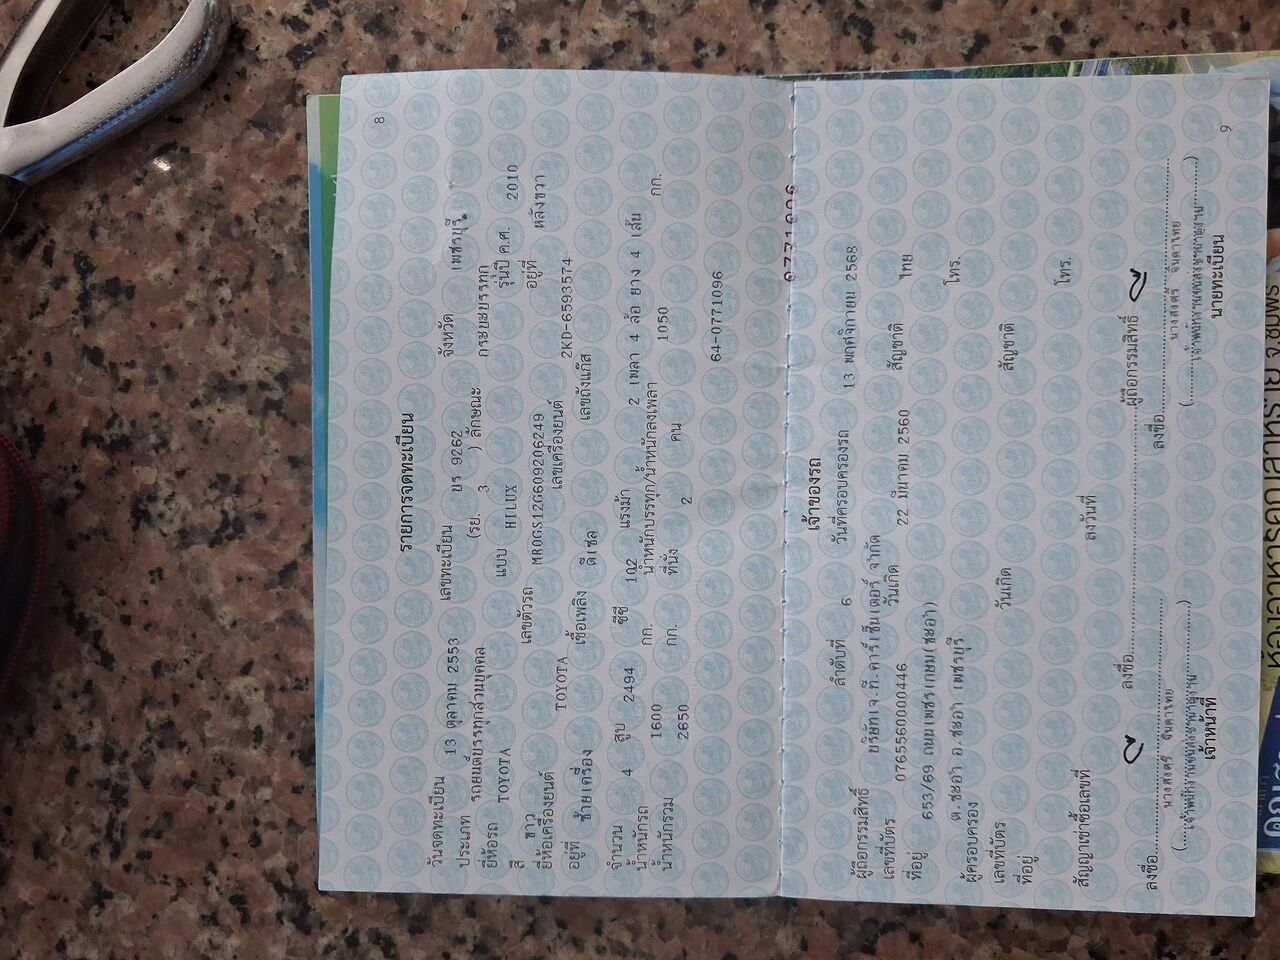 8
รายการจดทะเบียน
วันจดทะเบียน 13 ตุลาคม 2553 เลขทะเบียน บร 9262 จังหวัด เพชรบุรี
ประเภท รถยนต์บรรทุกส่วนบุคคล (รย. 3 ) ลักษณะ กระบะบรรทุก
ยี่ห้อรถ TOYOTA แบบ HILUX รุ่นปี ค.ศ. 2010
สี ขาว เลขตัวรถ MR0GS12G609206249 อยู่ที่ หลังขวา
ยี่ห้อเครื่องยนต์ TOYOTA เลขเครื่องยนต์ 2KD-6593574
อยู่ที่ ซ้ายเครื่อง เชื้อเพลิง ดีเซล เลขถังแก๊ส
จำนวน 4 สูบ 2494 ซีซี 102 แรงม้า 2 เพลา 4 ล้อ ยาง 4 เส้น
น้ำหนักรถ 1600 กก. น้ำหนักบรรทุก/น้ำหนักลงเพลา 1050 กก.
น้ำหนักรวม 2650 กก. ที่นั่ง 2 คน
64-0771096
เจ้าของรถ
ลำดับที่ 6 วันที่ครอบครองรถ 13 พฤศจิกายน 2568
ผู้ถือกรรมสิทธิ์ บริษัทเจ.ที.คาร์เซ็นเตอร์ จำกัด
เลขที่บัตร 0765560000446 วันเกิด 22 มีนาคม 2560 สัญชาติ ไทย
ที่อยู่ 653/69 ถนนเพชรเกษม(ชะอำ) โทร.
ต.ชะอำ อ.ชะอำ เพชรบุรี
ผู้ครอบครอง
เลขที่บัตร วันเกิด สัญชาติ
ที่อยู่ โทร.
สัญญาเช่าซื้อเลขที่ ลงวันที่
ลงชื่อ ผู้ถือกรรมสิทธิ์
ลงชื่อ ลงชื่อ
นางสงศรี จินดาไทย นางสงศรี จินดาไทย
(เจ้าพนักงานขนส่งชำนาญงาน) (เจ้าพนักงานขนส่งชำนาญงาน)
เจ้าหน้าที่ นายทะเบียน
9